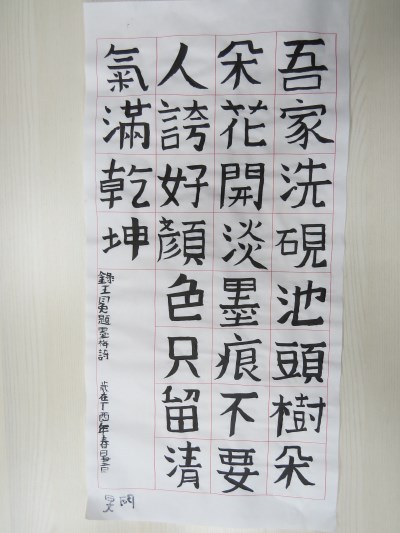 吾家洗硯池頭樹朵
朵花開淡墨痕不要
人誇好顏色只留清
氣滿乾坤
錄王冕題墨梅詩 歲在丁酉年春